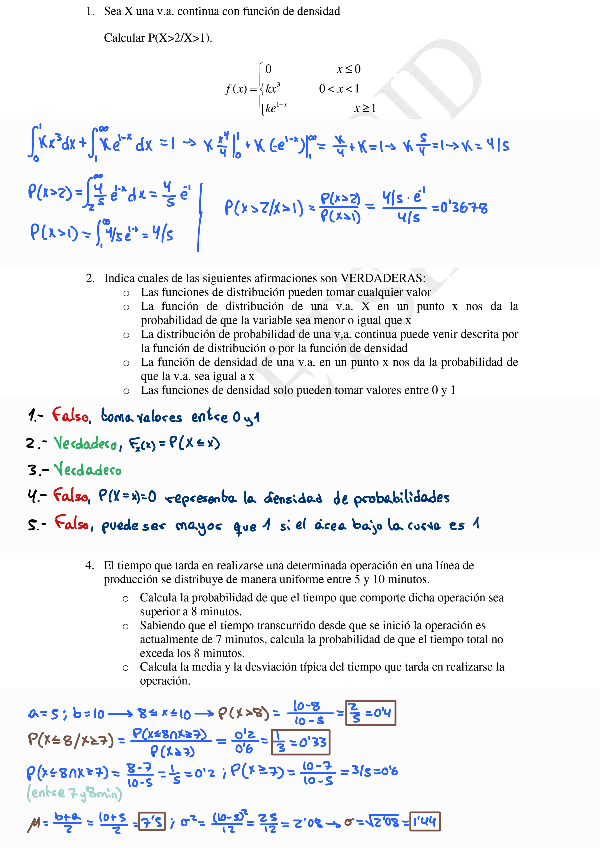 1. Sea X una v.a. continua con función de densidad
Calcular P(X>2/X>1).
f(x) = { 0 x ≤ 0
kx³ 0 < x < 1
ke^{1-x} x ≥ 1
∫₀¹ Kx³dx + ∫₁^∞ Ke^{1-x} dx = 1 → K x⁴/4 |₀¹ + K (-e^{1-x})|₁^∞ = K/4 + K = 1 → K 5/4 = 1 → K = 4/5
P(x>2) = ∫₂^∞ 4/5 e^{1-x} dx = 4/5 e^{-1}
P(x>2/x>1) = P(x>2)/P(x>1) = (4/5 · e^{-1})/(4/5) = 0'3678
P(x>1) = ∫₁^∞ 4/5 e^{1-x} = 4/5
2. Indica cuales de las siguientes afirmaciones son VERDADERAS:
o Las funciones de distribución pueden tomar cualquier valor
o La función de distribución de una v.a. X en un punto x nos da la
probabilidad de que la variable sea menor o igual que x
o La distribución de probabilidad de una v.a. continua puede venir descrita por
la función de distribución o por la función de densidad
o La función de densidad de una v.a. en un punto x nos da la probabilidad de
que la v.a. sea igual a x
o Las funciones de densidad solo pueden tomar valores entre 0 y 1
1.- Falso, toma valores entre 0 y 1
2.- Verdadero, Fₓ(x) = P(X ≤ x)
3.- Verdadero
4.- Falso, P(X=x)=0 representa la densidad de probabilidades
5.- Falso, puede ser mayor que 1 si el área bajo la curva es 1
4. El tiempo que tarda en realizarse una determinada operación en una línea de
producción se distribuye de manera uniforme entre 5 y 10 minutos.
o Calcula la probabilidad de que el tiempo que comporte dicha operación sea
superior a 8 minutos.
o Sabiendo que el tiempo transcurrido desde que se inició la operación es
actualmente de 7 minutos, calcula la probabilidad de que el tiempo total no
exceda los 8 minutos.
o Calcula la media y la desviación típica del tiempo que tarda en realizarse la
operación.
a=5 ; b=10 → 8 ≤ x ≤ 10 → P(x>8) = (10-8)/(10-5) = 2/5 = 0'4
P(x≤8/x≥7) = P(x≤8∩x≥7)/P(x≥7) = 0'2/0'6 = 1/3 = 0'33
P(x≤8∩x≥7) = (8-7)/(10-5) = 1/5 = 0'2 ; P(x≥7) = (10-7)/(10-5) = 3/5 = 0'6
(entre 7 y 8 min)
μ = (b+a)/2 = (10+5)/2 = 7'5 ; σ² = (10-5)²/12 = 25/12 = 2'08 → σ = √2'08 = 1'44